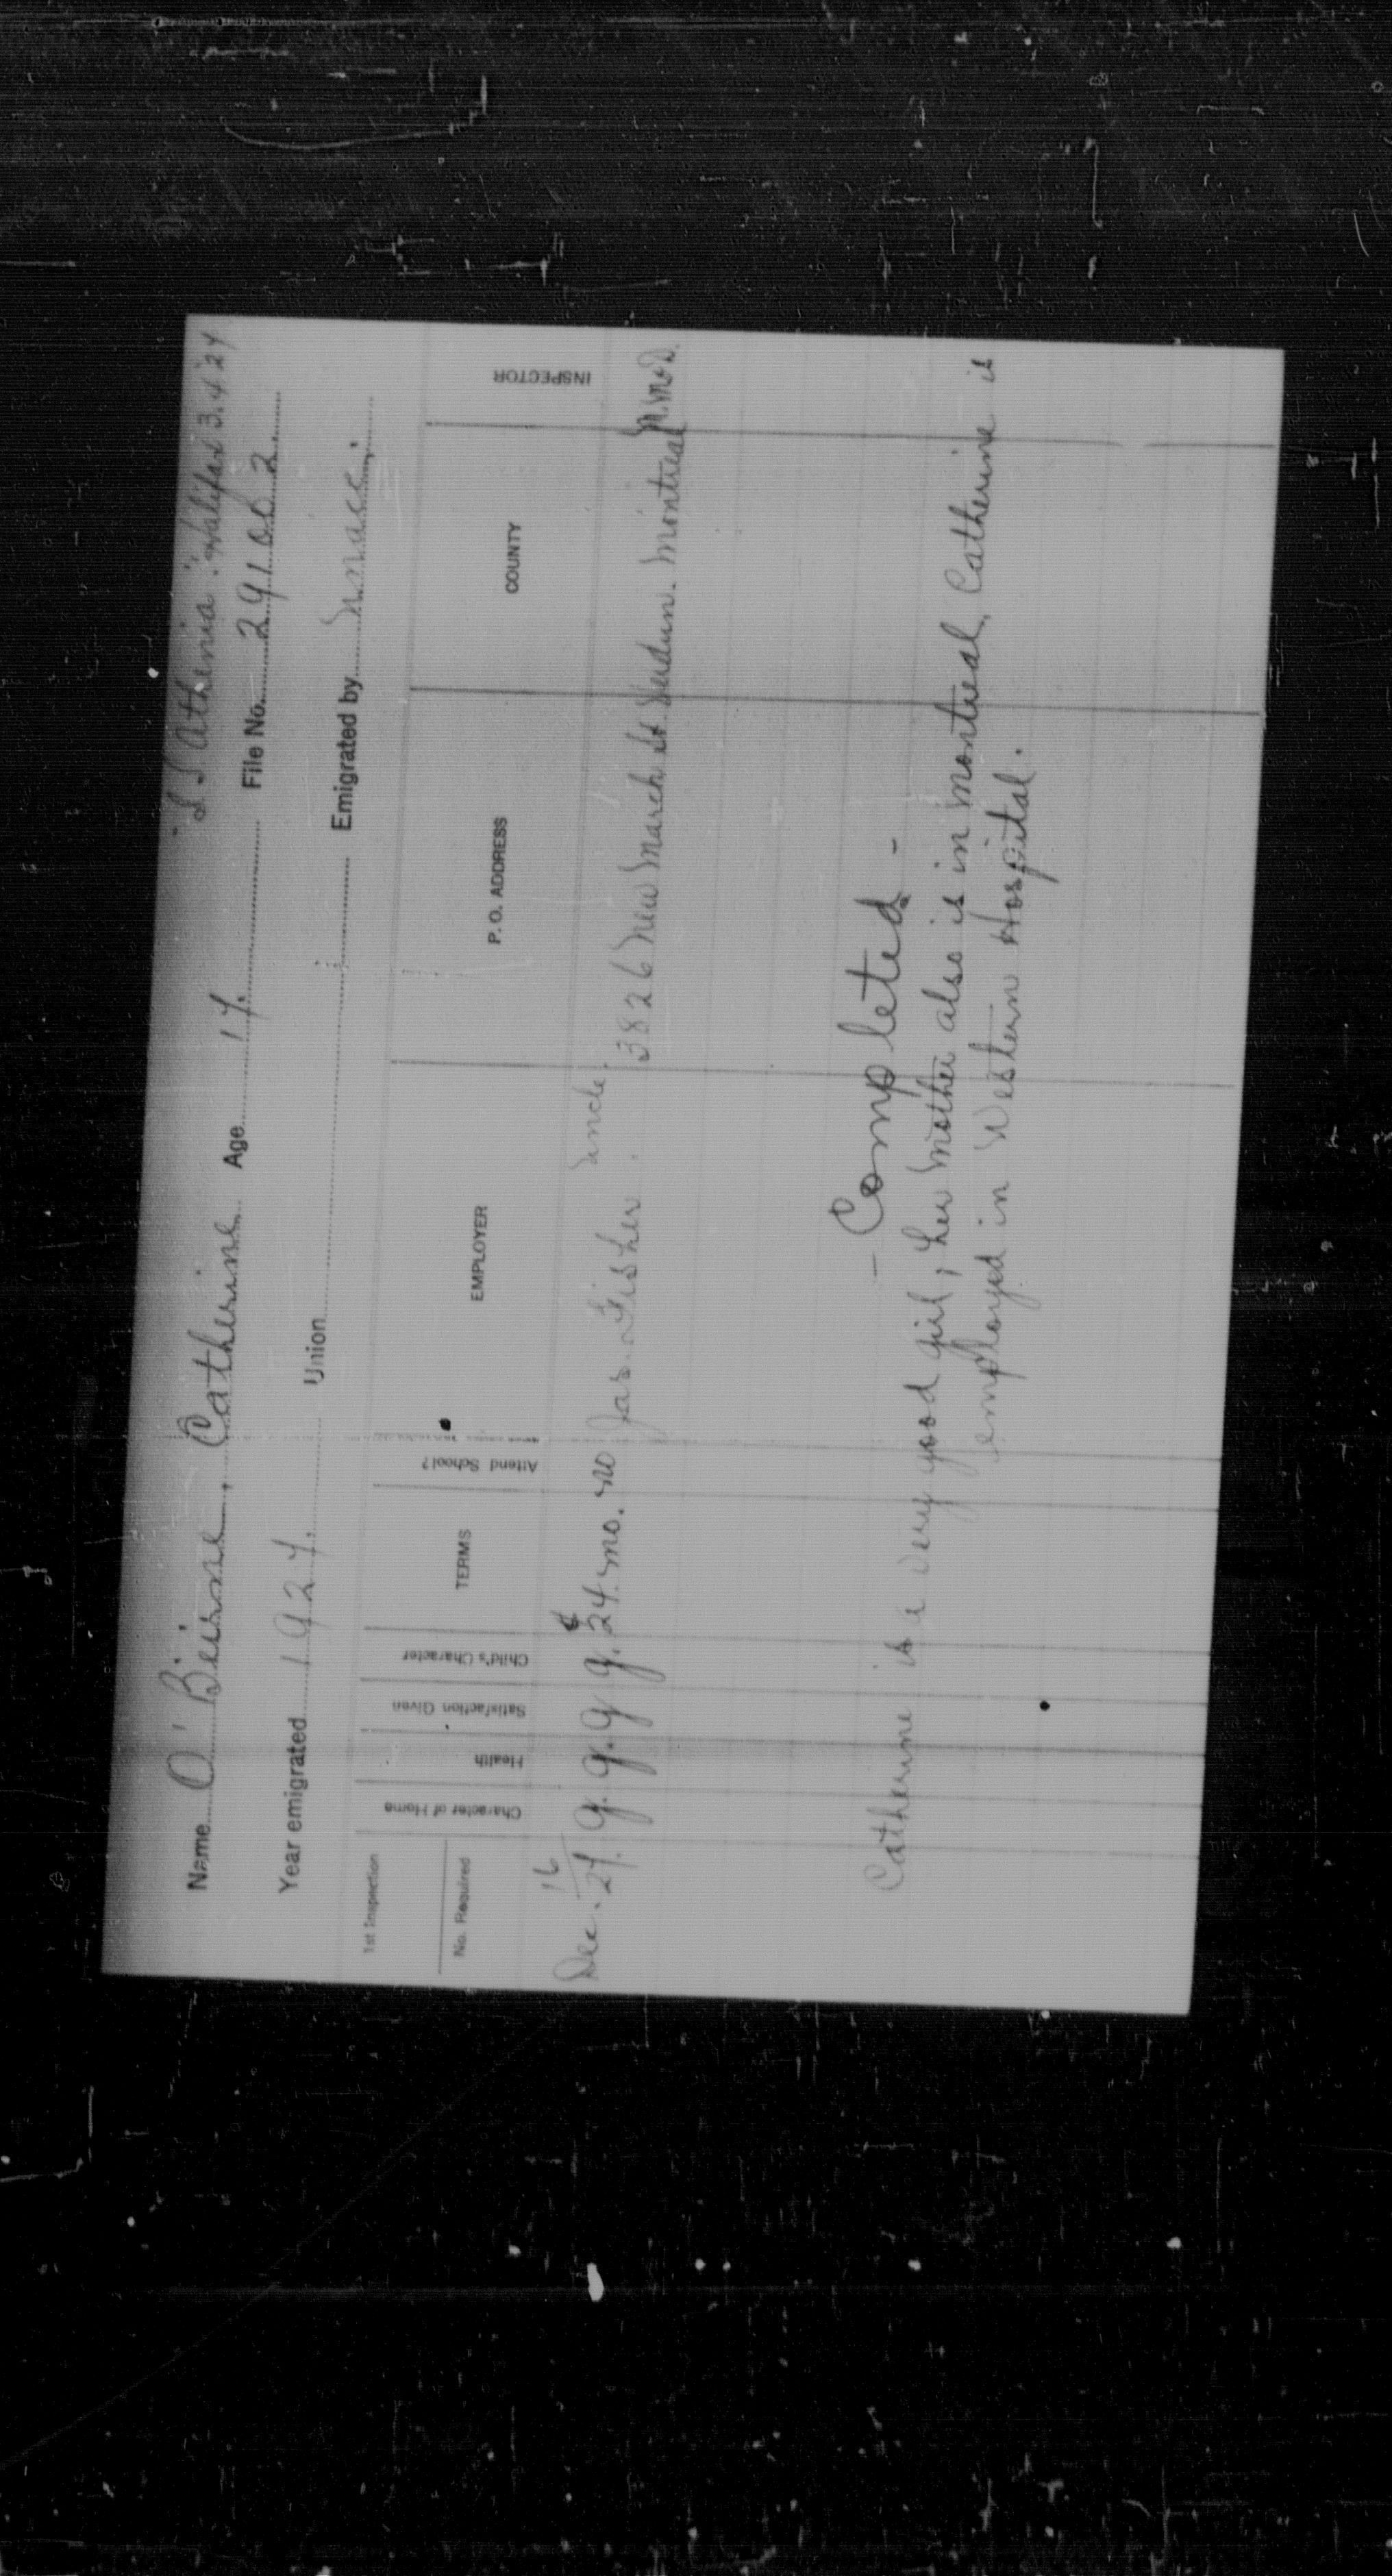 "S S Athenia" Halifax 3.4.27
Name O'Beirne, Catherine Age 17. File No. 291002
Year emigrated 1927. Union Emigrated by Unacc.
1st Inspection
No. Required
Character of Home
Health
Satisfaction Given
Child's Character
TERMS
Attend School?
EMPLOYER
P. O. ADDRESS
COUNTY
INSPECTOR
uncle.
Dec. 16/27. g. g. g g. $24. mo. no Jas. Fisher. 3826 New March St. Verdun. Montreal
- Completed -
Catherine is a very good girl, her mother also is in Montreal, Catherine is
employed in Western Hospital.